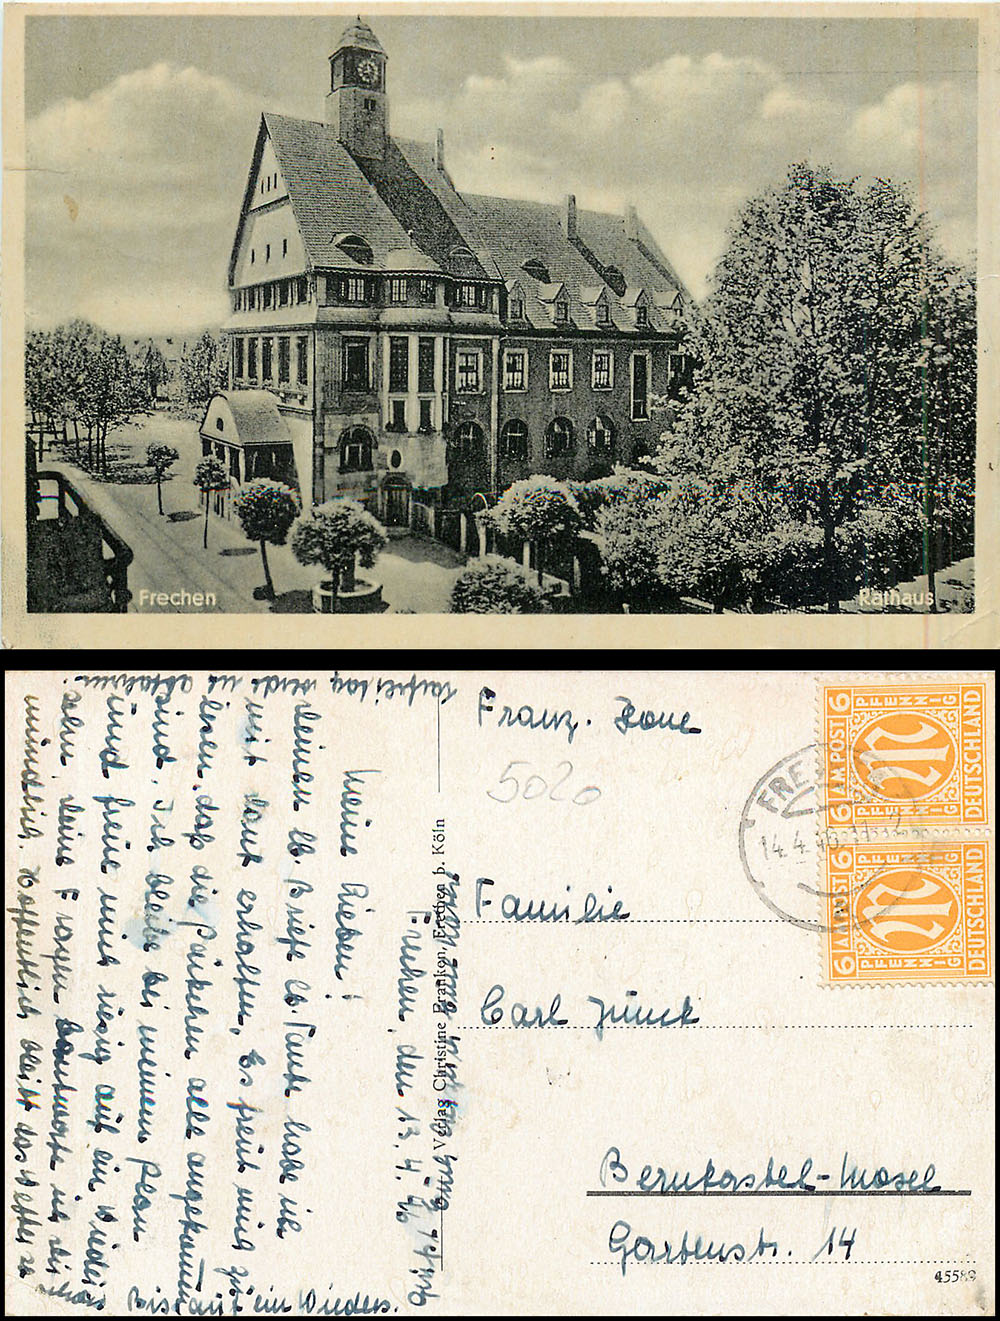 Frechen
Rathaus
Franz. Hone
5020
Familie
Carl Jünck
Bernkastel-Mosel
Gartenstr. 14
45589
Verlag Christine Franken, Frechen b. Köln
6 AM POST 6
PFENNIG
PFENNIG
DEUTSCHLAND
M
6 AM POST 6
PFENNIG
PFENNIG
DEUTSCHLAND
M
FRECHEN
14.4.46
Frechen, den 13.4.46
Meine Lieben!
Deinen lb. Brief lb. Tante habe ich
mit Dank erhalten, Es freut mich zu
lesen, daß die Päckchen alle angekommen
sind. Ich bleibe bei meinem Plan
und freue mich riesig auf ein Wieder
sehn, Deine Fragen beantworte ich dir
mündlich. Hoffentlich bleibt das Wetter so
Bis auf ein Wieders.
Karfreitag werde ich abfahren.